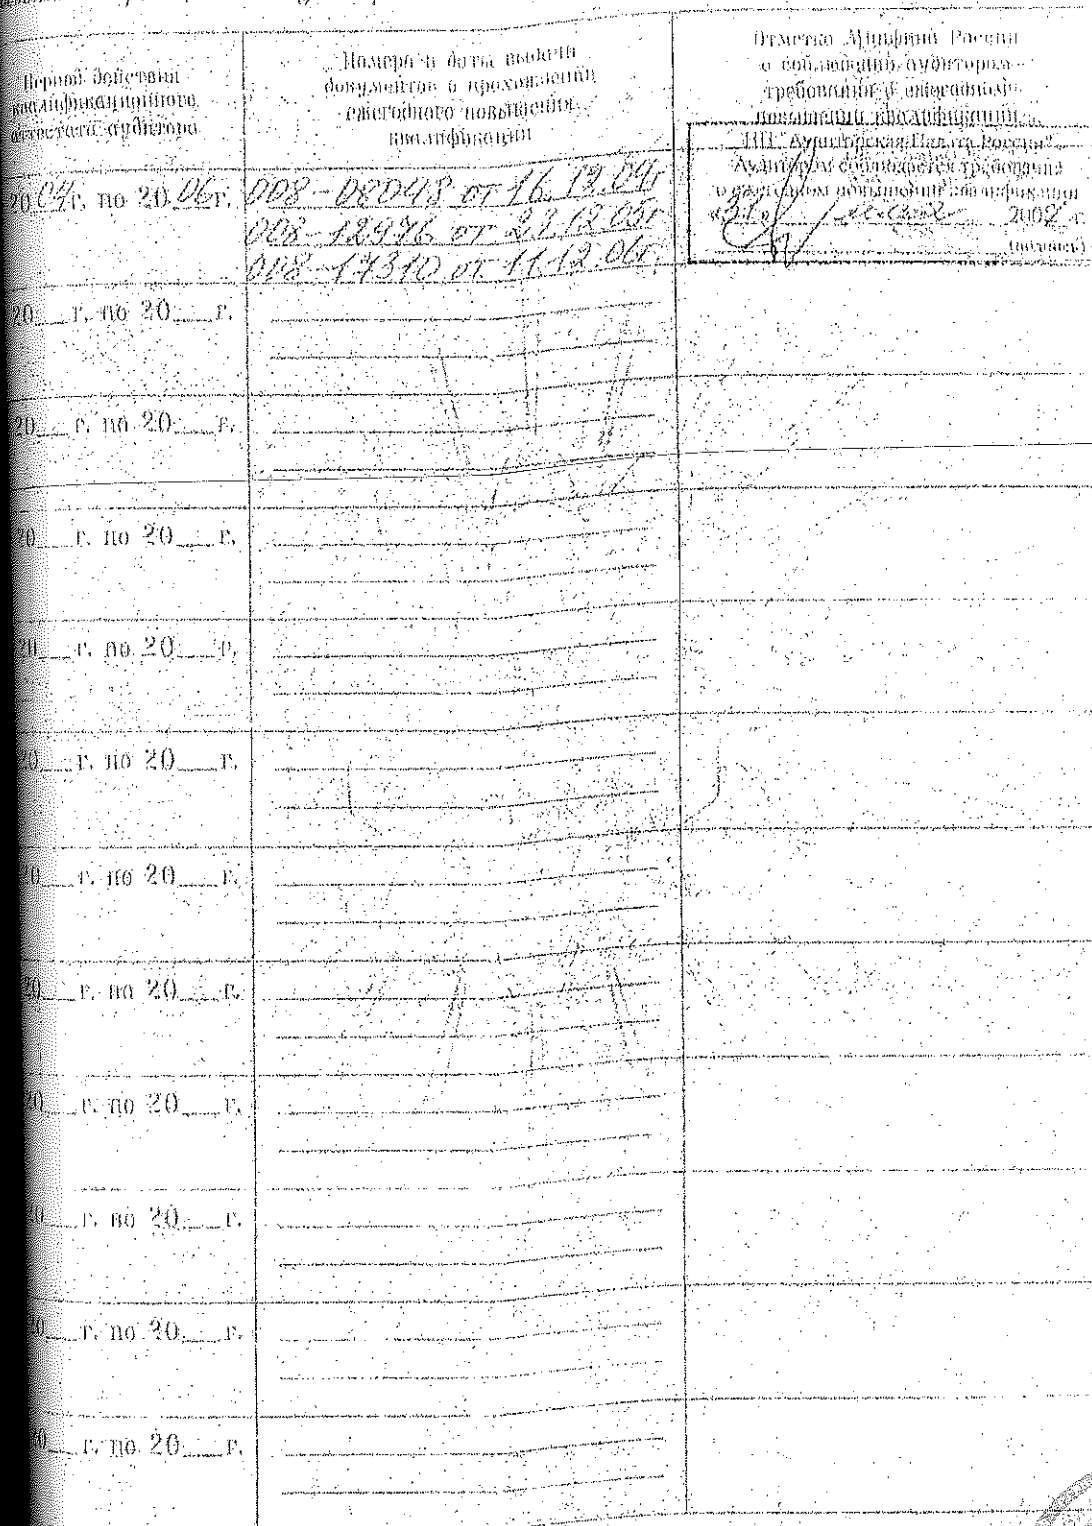 Период действия
квалификационного
аттестата аудитора
Номера и даты выдачи
документов о прохождении
ежегодного повышения
квалификации
Отметка Минфина России
о соблюдении аудитором
требований о ежегодном
повышении квалификации
2004г. по 2006г.
008-08048 от 16.12.04г
008-12976 от 22.12.05г
008-17310 от 11.12.06г.
НП "Аудиторская Палата России"
Аудитором соблюдается требование
о ежегодном повышении квалификации
200 г.
(подпись)
20 г. по 20 г.
20 г. по 20 г.
20 г. по 20 г.
20 г. по 20 г.
20 г. по 20 г.
20 г. по 20 г.
20 г. по 20 г.
20 г. по 20 г.
20 г. по 20 г.
20 г. по 20 г.
20 г. по 20 г.